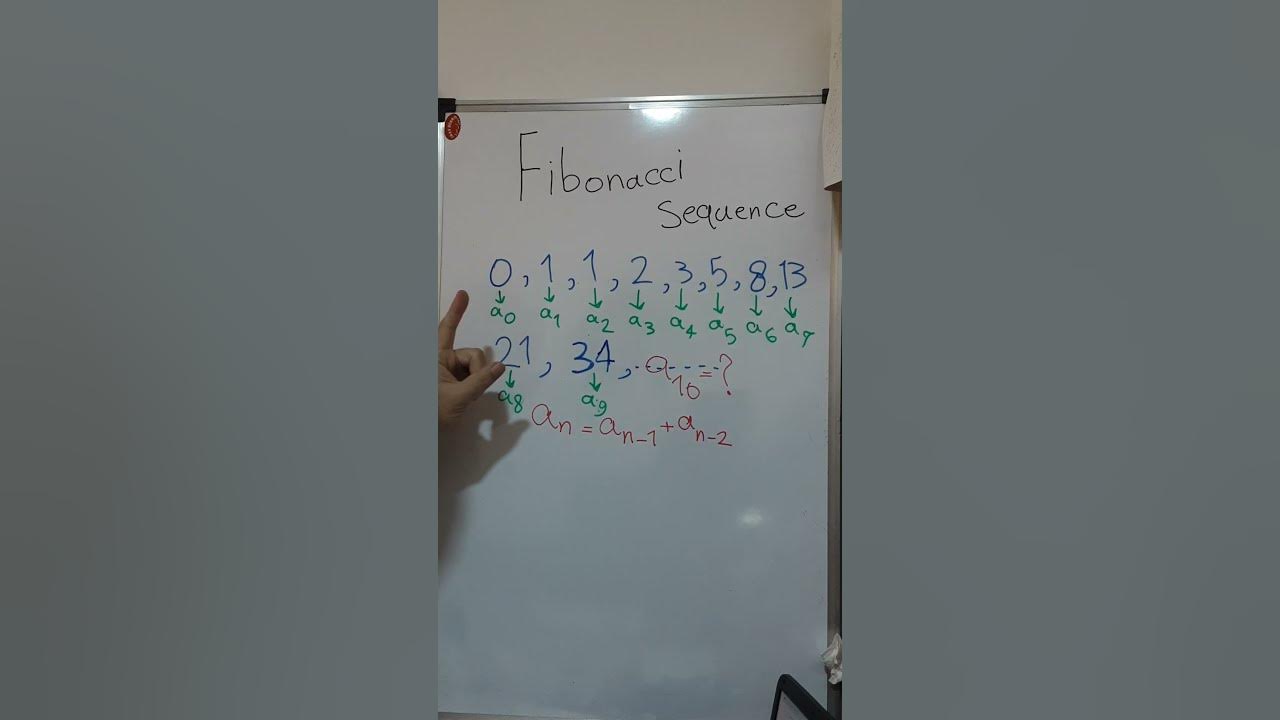 Fibonacci
Sequence
0, 1, 1, 2, 3, 5, 8, 13
↓ ↓ ↓ ↓ ↓ ↓ ↓ ↓
a₀ a₁ a₂ a₃ a₄ a₅ a₆ a₇
21, 34, ------ a₁₀ = ?
↓ ↓
a₈ a₉
aₙ = aₙ₋₁ + aₙ₋₂